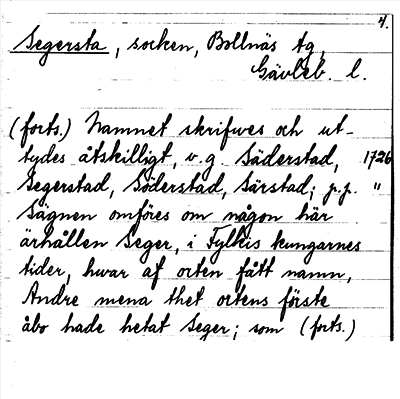 4.
Segersta, socken, Bollnäs tg,
Gävleb. l.
(forts.) Namnet skrifwes och ut-
tydes åtskilligt, v.g. Säderstad, 1726
Segerstad, Söderstad, Särstad; p.p. "
Sägnen omföres om någon här
ärhållen Seger, i Fylkis kungarnes
tider, hwar af orten fått namn,
Andre mena thet ortens förste
åbo hade hetat Seger; som (forts.)